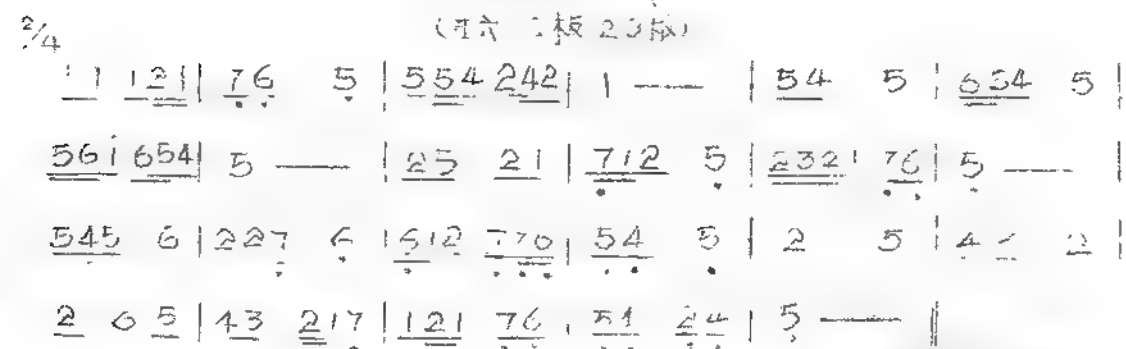 2/4
1 1 1 2 1 | 7 6 5 | 5 5 4 2 4 2 | 1 — | 5 4 5 | 6 5 4 5 |
5 6 i 6 5 4 | 5 — | 2 5 2 1 | 7 1 2 5 | 2 3 2 1 7 6 | 5 — |
5 4 5 6 | 2 2 7 6 | 5 1 2 7 7 6 | 5 4 5 | 2 5 | 4 2 |
2 6 5 | 4 3 2 1 7 | 1 2 1 7 6 | 5 4 2 4 | 5 — ‖